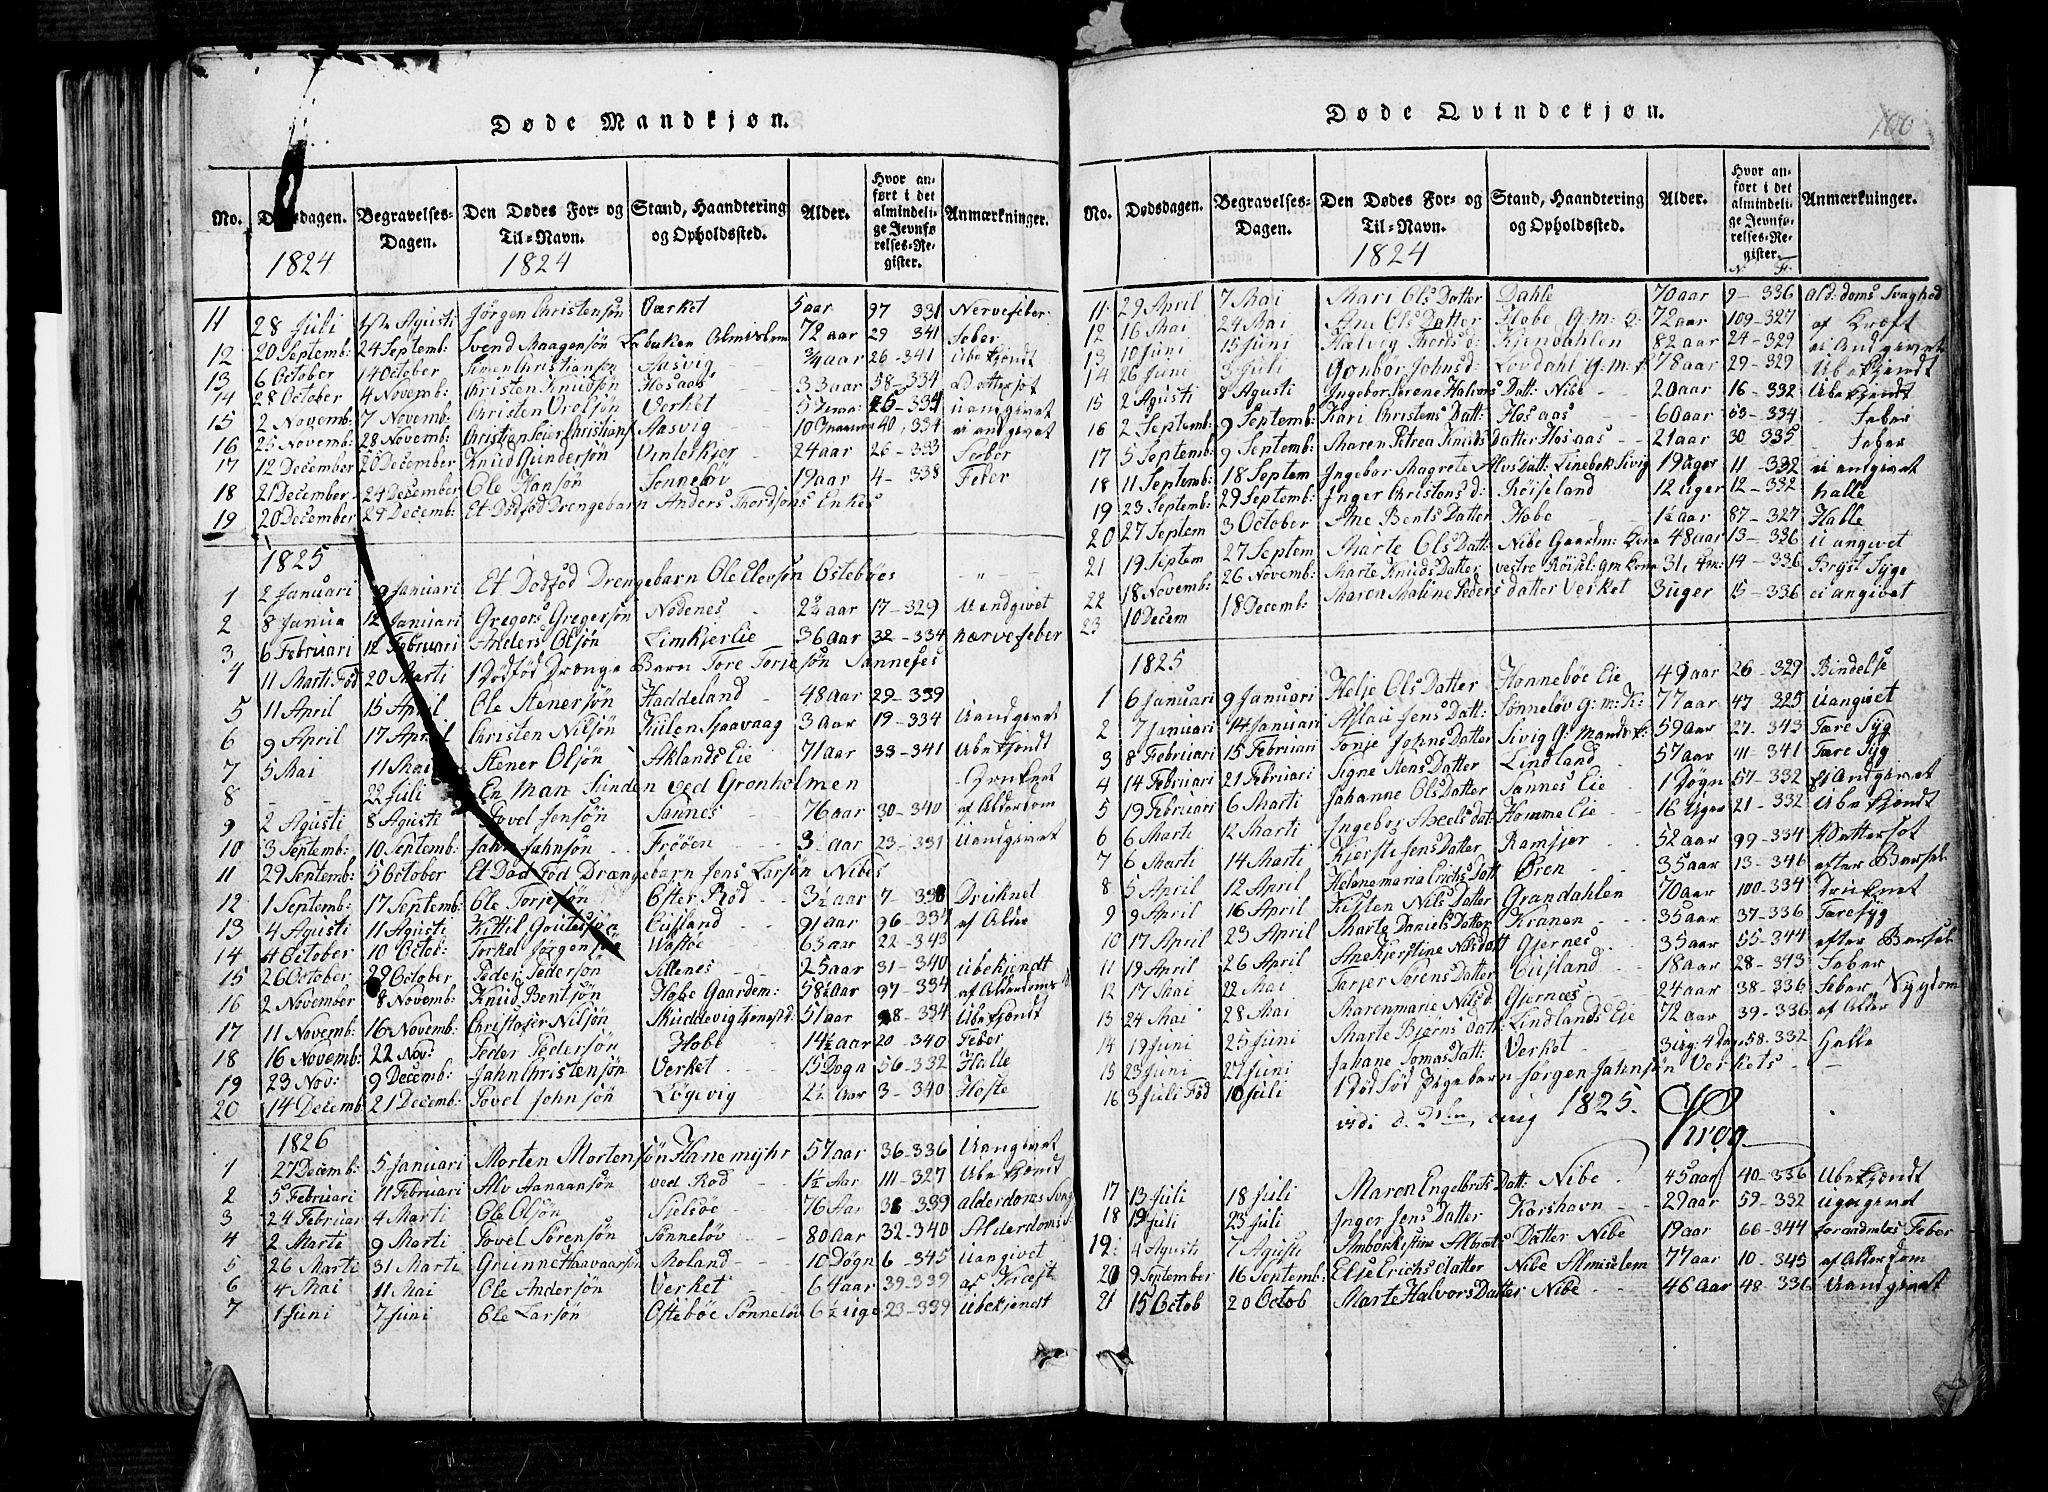 Døde Mandkjøn.
No. Dødsdagen. Begravelses-Dagen. Den Dødes For- og Til-Navn. Stand, Haandtering og Opholdssted. Alder. Hvor anført i det almindelige Jevnførelses-Register. Anmærkninger.
1824 1824
11 28 Juli Agusti Jörgen Christensön Værket 5 aar 97 331 Nervefeber
12 20 Septemb: 24 Septemb: Svend Aaagensön 72 aar 29 341 Feber
13 6 October 14 October Simen Christiansön Aasvig 3/4 aar 26-341 ubekjendt
14 28 October 4 Novemb: Christen Knudsön Hosaas 33 aar 58-334
15 2 Novemb: 7 Novemb: Christen Verket 334 uangivet
16 25 Novemb: 28 Novemb: Christen Aasvig 40, 334 ei angivet
17 12 December 20 December Knud Gundersön Vinterkjer 24 aar 26-333 Feber
18 21 December 24 December Ole Hansön Sonneløv 19 aar 4-338 Feber
19 20 December 29 Decemb: Et Dödföd Drengebarn Anders Thordsöns Enkes
1825
1 2 Januari 9 Januari Et Dödföd Drengebarn Ole Elevsön Osteböes - " -
2 8 Janua 12 Januari Gregers Gregersön Nödenes 2 3/4 aar 17-329 Uandgivet
3 6 Februari 12 Februari Anders Olsön Limkjer Eie 36 Aar 32-334 nærvefeber
4 11 Marti Föd 20 Marti 1 Dödföd Drænge Barn Tore Torjesön Sannes
5 11 April 15 April Ole Stenersön Haddeland 48 Aar 29-339
6 9 April 17 April Christen Nilsön Kiilen Haavaag 3 Aar 19-334 Uandgivet
7 5 Mai 11 Mai Stener Olsön Aklands Eie 71 Aar 33-341 Ubekjendt
8 - - 22 Juli En Man funden ved Gronholmen Druknet
9 2 Agusti 8 Agusti Tovel Jensön Sannes 76 aar 30-340 af Alderdom
10 3 Septemb: 10 Septemb: Jahn Jahnsön Fröen 3 Aar 23-331 Uandgivet
11 29 Septemb: 5 October Et Död Föd Drængebarn Jens Larsön Nibes
12 1 Septemb: 17 Septemb: Ole Torjesön Efter Röd 3 1/2 aar 7-338 Druknet
13 4 Agusti 11 Agusti Kittil Goutesön Eisland 91 aar 96-337 af Alder
14 4 October 10 Octob: Terkel Jörgensön Vastöe 63 aar 22-343
15 26 October 29 October Peder Pedersön Sillenes 25 aar 31-340 ubekjendt
16 2 November 8 Novemb: Knud Bentsön Hobe Gaardem: 58 1/2 Aar 97-334 af Alderdoms
17 11 Novemb: 16 Novemb: Christofer Nilsön Skuddevig 51 aar 334 Ubekjendt
18 16 Novemb: 22 Nov: Peder Pedersön Hobe 14 1/2 aar 20-340 Feber
19 23 Nov: 9 Decemb: Jahn Christensön Verket 15 Dogn 56-332 Halle
20 14 Decemb 21 Decemb: Povel Johnsön Lögevig 1 1/2 Aar 3-340 Hoste
1826
1 27 Decemb: 5 Januari Morten Mortensön Hanemyhr 57 aar 36-336 Uangivet
2 5 Februari 11 Februari Alv Aanaansön ved Röd 1 1/2 Aar 111-327 Ubekjendt
3 24 Februar 4 Marti Ole Olsön Sjelsöe 76 Aar 339 alderdoms Svag
4 2 Marti 9 Marti Povel Sörensön Sönnelöv 80 Aar 32-340 Alderdoms
5 26 Marti 31 Marti Grunne Haavaarsön Moland 10 Dögn 6-345 Uangivet
6 4 Mai 11 Mai Ole Andersön Verket 64 aar 39-339 af Kræft
7 1 Juni 7 Juni Ole Larsön Osteböe Sönnelöv 6 1/2 uge 23-339 ubekjendt
Døde Qvindekjøn.
100
No. Dødsdagen. Begravelses-Dagen. Den Dødes For- og Til-Navn. Stand, Haandtering og Opholdssted. Alder. Hvor anført i det almindelige Jevnførelses-Register. Anmærkninger.
1824 N. F.
11: 29 April 7 Mai Mari Ols Datter Dahle 70 aar 9-336 Ald:doms Svaghed
12 16 Mai 24 Mai Ane Ols Datter Hobe G:m: 72 aar 109-327 af Kræft
13 10 Juni 15 Juni Hælvig Thoris d: Kjenvahlen 82 aar 24-329 ei Andgivet
14 26 Juni 3 Juli Gonbör Johns d: Lovdahl G:m: 78 aar 29-329 Ubekjendt
15 2 Agusti 8 Agusti Ingebor Serene Halvors Datt: Nibe 20 aar 16-332 Ubekjendt
16 2 Septemb: 9 Septemb: Kari Christens Datt: Hosaas 60 aar 53-334 Feber
17 5 Septemb: 9 Septemb: Maren Petrea Knuds Datter Hosaas 21 aar 30 335 Feber
18 11 Septemb: 18 Septem Ingebor Magrete Alvs Datt: Linebek Sivig 19 uger 11-332 ei angivet
19 23 Septemb: 29 Septemb: Inger Christens d: Röiseland 12 uger 12-332 halle
20 27 Septem 3 October Ane Bents Datter Hobe 1 1/2 aar 87-327 Halle
21 19 Septem 27 Septem Marte Ols Datt: Nibe Gaardm: Kone 48 aar 13-336 ei angivet
22 18 Novemb: 26 Novemb: Marte Knuds Datter vestre Röisel: gm Kone 31 14-336 Bryst Syge
23 10 Decem 18 Decemb: Maren Maline Peders datter Verket 3 uger 15-336 ei angivet
1825
1 6 Januari 9 Januari Helje Ols Datter Honneböe Eie 49 aar 26-329 Bindelse
2 7 Januari 14 Januari Aslau Jens Datt: Sönnelöv G:m:K: 77 aar 47-325 Uangivet
3 8 Februari 15 Februari Tonje Johns Datter Sivig G: Mands 59 aar 27-343 Tære Syg
4 14 Februari 21 Februari Signe Stens Datter Lindland 57 aar 41-341 Tære Syg
5 19 Februari 6 Marti Johanne Ols Datter Sannes Eie 1 Dögn 57-332 Ej Andgivet
6 6 Marti 12 Marti Ingebor Axels dat: Homme Eie 16 Uger 21-332 Ubekjendt
7 6 Marti 14 Marti Kjersti Jens Datter Ramsjer 52 aar 99-334 Vattersot
8 5 April 12 April Helene maria Erichs Datt Ören 35 aar 13-346 efter Barsel
9 9 April 16 April Kisten Nils Datter Grandahlen 70 aar 100-334 Druknet
10 17 April 23 April Marte Daniels Datter Kranen 35 aar 37-336 Tæresyg
11 19 April 26 April Ane Kjerstine Nils Datt Gjernes 35 aar 55-344 efter Barsel
12 17 Mai 22 Mai Tarjer Sörens Datter Eisland 18 aar 28-343 Feber
13 24 Mai 28 Mai Maren marie Nils d: Gjernes 24 aar 38-336 Feber Sygdom
14 19 Juni 25 Juni Marte Bjørns Datt Lindlands Eie 72 aar 39-336 af Alder
15 23 Juni 27 Juni Jahane Tomas Datt: Verket 3 ug: 4 Dag 58-332 Halle
16 3 Juli Föd 10 Juli 1 Dödföd Pigebarn Jørgen Jahnsön Verkets
vidi d. aug 1825. Krog
17 13 Juli 18 Juli Maren Engelbrits Datt: Nibe 45 aar 40-336 Ubekjendt
18 19 Juli 23 Juli Inger Jens Datter Korshavn 29 aar 59-332 ugngivet
19: 4 Agusti 7 Aguste Ambor Kistine Albrets Datter Nibe 19 aar 60-344 foraadnelses Feber
20 9 September 16 Septemb: Else Erichs datter Nibe Almiselem 77 aar 10-345 af Alderdom
21 15 Octob 20 Octob Marte Halvors Datter Nibe 46 Aar 48-336 Uandgivet